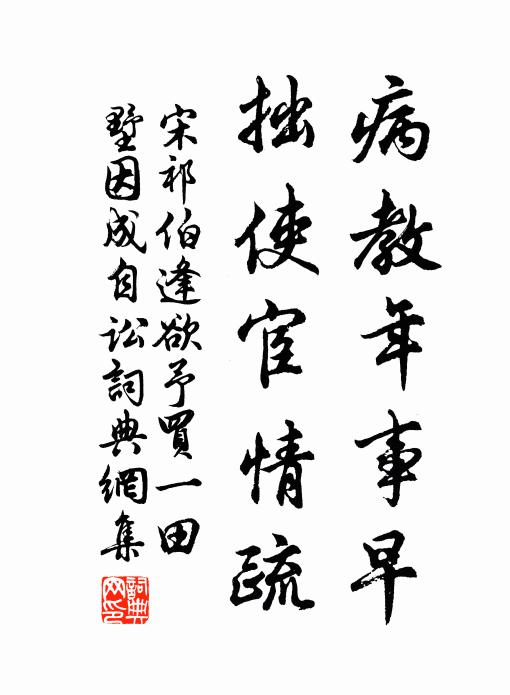 病教年事早
拙使宦情疏
宋祁伯逢欲予買一田
墅因成自訟詞典網集
詞典網印